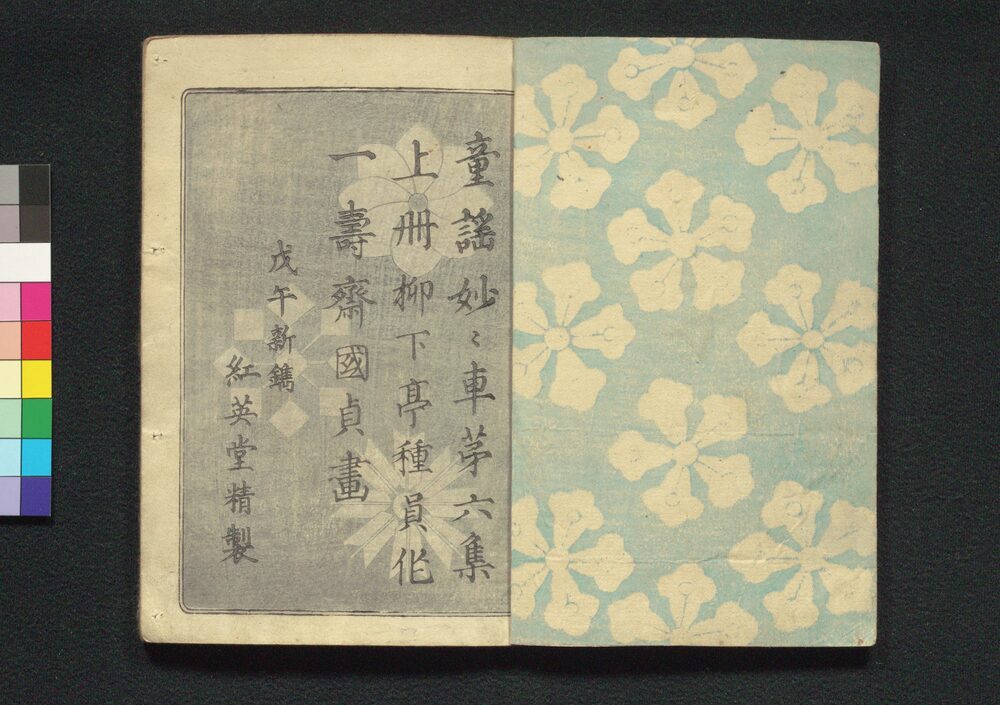 童謡妙〻車苐六集
上册柳下亭種員作
一壽齋國貞畫
戊午新鐫
紅英堂精製